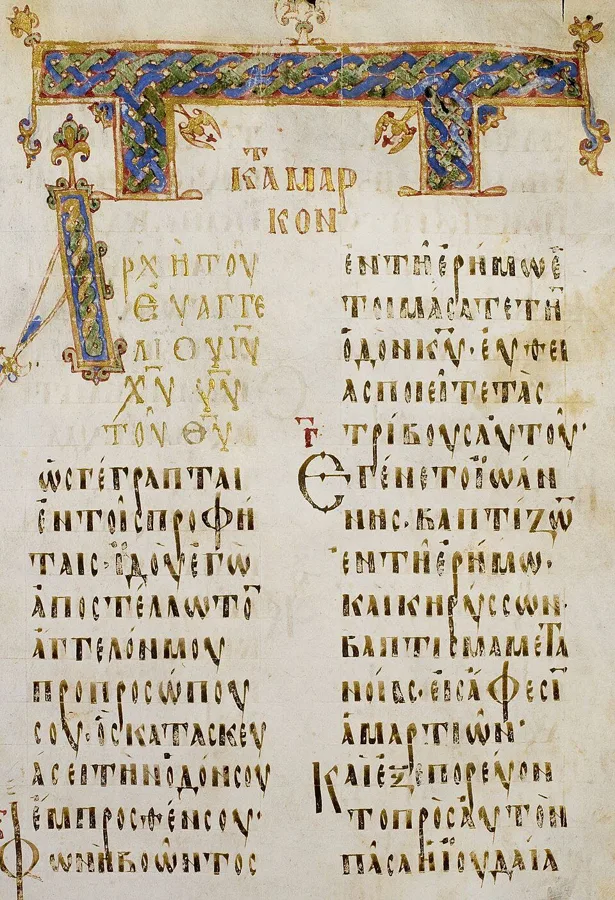 ΚΑΤ ΜΑΡ
ΚΟΝ
ΑΡΧΗ ΤΟΥ
ΕΥΑΓΓΕ
ΛΙΟΥ ΙΥ̅
ΧΥ̅ ΥΥ̅
ΤΟΥ ΘΥ̅
ὩΣ ΓΕΓΡΑΠΤΑΙ
ἘΝ ΤΟΙΣ ΠΡΟΦΗ
ΤΑΙΣ· ἸΔΟῪ ἘΓΩ
ἈΠΟΣΤΕΛΛΩ ΤΟ̅
ἈΓΓΕΛΟΝ ΜΟΥ
ΠΡΟ ΠΡΟΣΩΠΟΥ
ΣΟΥ· ὉΣ ΚΑΤΑΣΚΕΥ
ΑΣΕΙ ΤΗΝ ὉΔΟΝ ΣΟΥ
ἘΜΠΡΟΣΘΕΝ ΣΟΥ·
ΦΩΝΗ ΒΟΩΝΤΟΣ
ἘΝ ΤΗ ἘΡΗΜΩ Ἑ
ΤΟΙΜΑΣΑΤΕ ΤΗ̅
ὉΔΟΝ ΚΥ̅· ΕΥΘΕΙ
ΑΣ ΠΟΙΕΙΤΕ ΤΑΣ
ΤΡΙΒΟΥΣ ΑΥΤΟΥ·
ἘΓΕΝΕΤΟ ἸΩΑΝ
ΝΗΣ· ΒΑΠΤΙΖΩ̅
ἘΝ ΤΗ ἘΡΗΜΩ·
ΚΑΙ ΚΗΡΥΣΣΩΝ·
ΒΑΠΤΙΣΜΑ ΜΕΤΑ
ΝΟΙΑΣ· ΕΙΣ ἈΦΕΣΙ̅
ἉΜΑΡΤΙΩΝ·
ΚΑΙ ἘΞΕΠΟΡΕΥΟΝ
ΤΟ ΠΡΟΣ ΑΥΤΟΝ
ΠΑΣΑ Ἡ ἸΟΥΔΑΙΑ